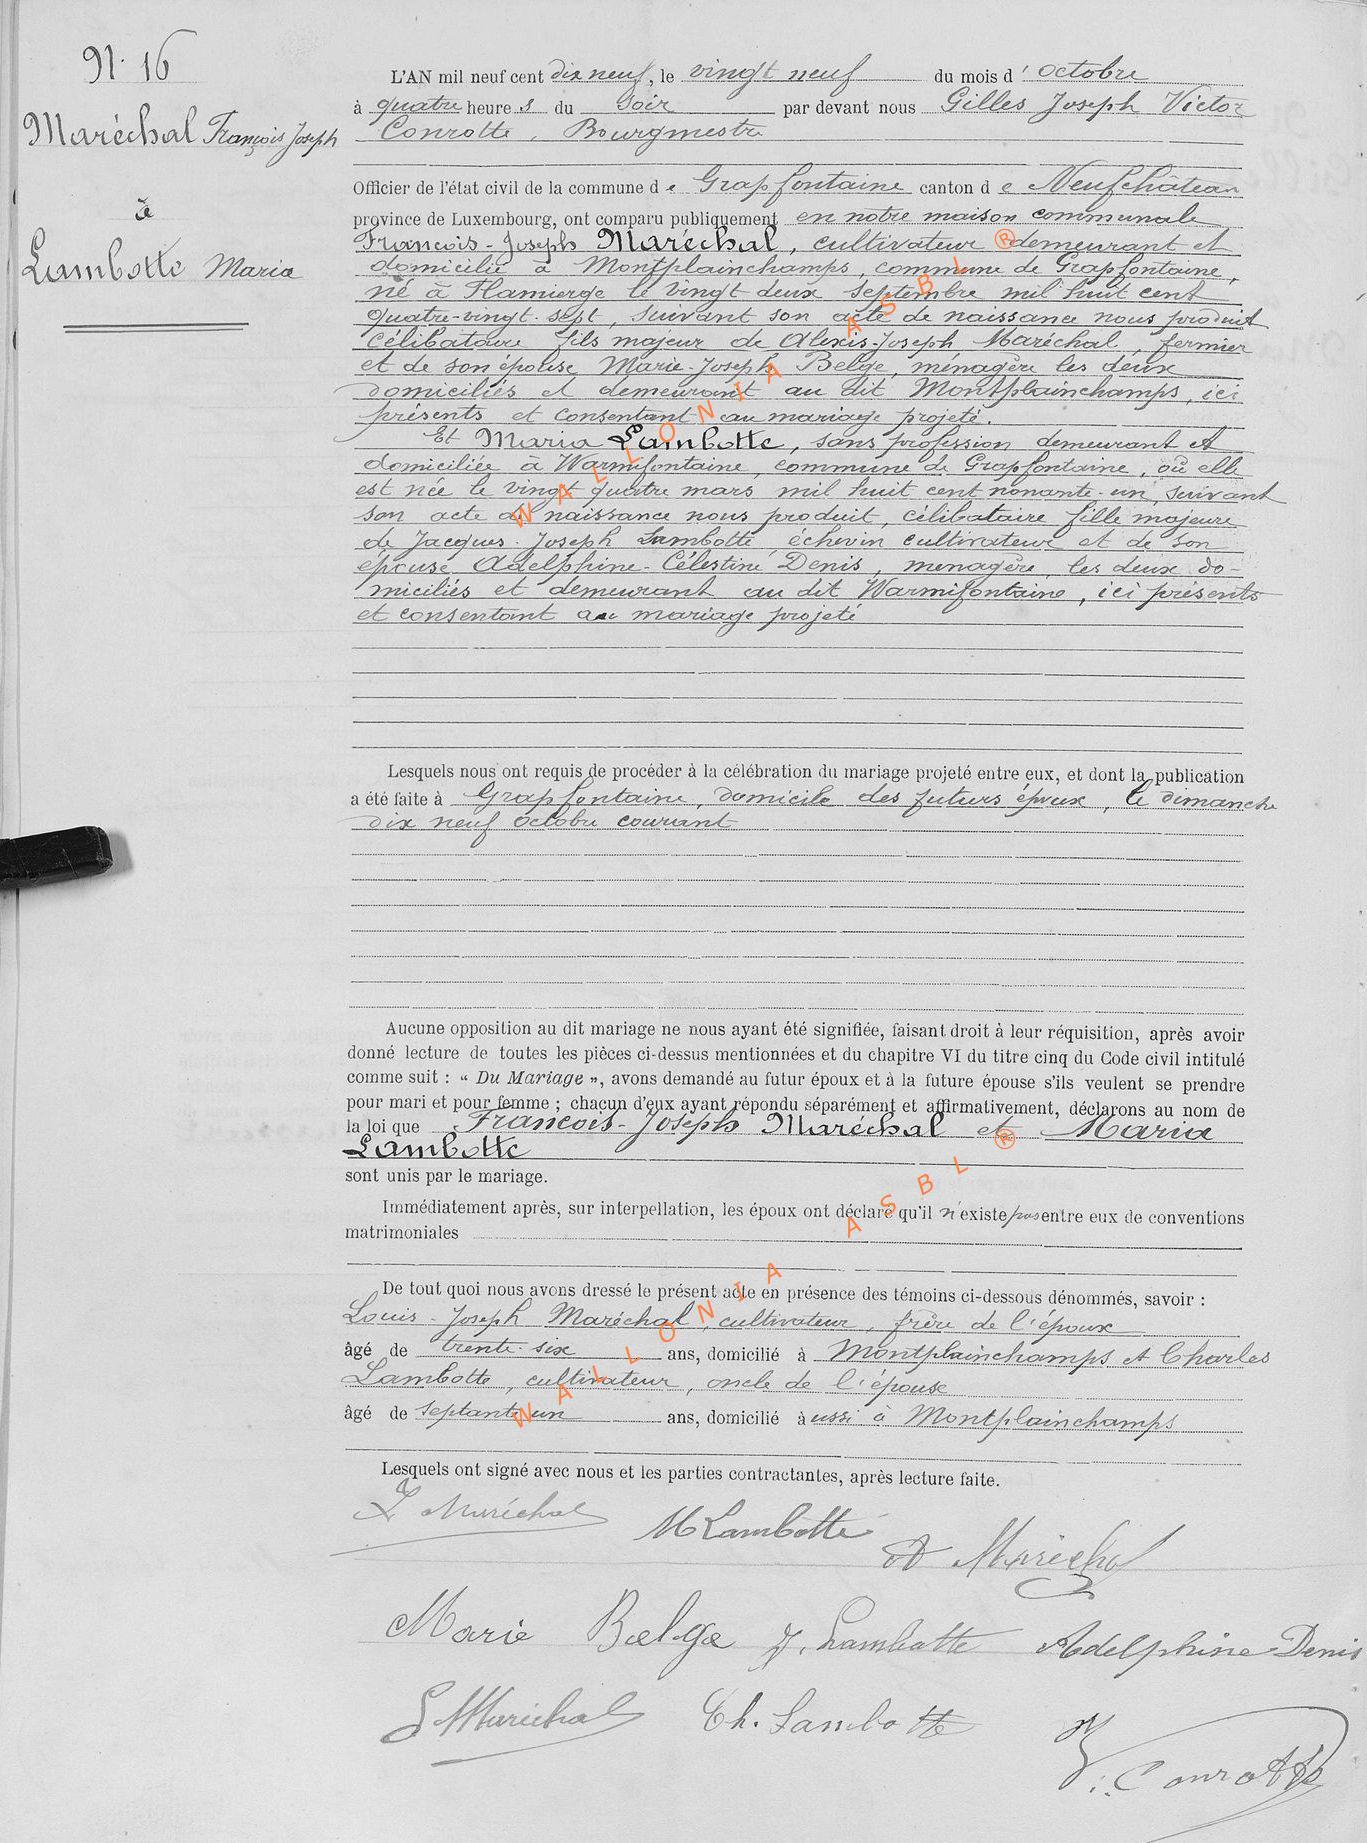 N. 16
Maréchal François Joseph
&
Lambotte Maria
L'AN mil neuf cent dix neuf, le vingt neuf du mois d'octobre
à quatre heures du soir par devant nous Gilles Joseph Victor
Conrotte, Bourgmestre
Officier de l'état civil de la commune de Grapfontaine canton de Neufchâteau
province de Luxembourg, ont comparu publiquement en notre maison communale
François-Joseph Maréchal, cultivateur demeurant et
domicilié à Montplainchamps, commune de Grapfontaine,
né à Flamierge le vingt deux septembre mil huit cent
quatre-vingt-sept, suivant son acte de naissance nous produit
célibataire fils majeur de Alexis-Joseph Maréchal, fermier
et de son épouse Marie-Joseph Belge, ménagère les deux
domiciliés et demeurant au dit Montplainchamps, ici
présents et consentant au mariage projeté.
Et Maria Lambotte, sans profession demeurant et
domiciliée à Warmifontaine, commune de Grapfontaine, où elle
est née le vingt quatre mars mil huit cent nonante-un, suivant
son acte de naissance nous produit, célibataire fille majeure
de Jacques-Joseph Lambotte échevin cultivateur et de son
épouse Adelphine-Célestine Denis, menagère, les deux do-
miciliés et demeurant au dit Warmifontaine, ici présents
et consentant au mariage projeté
Lesquels nous ont requis de procéder à la célébration du mariage projeté entre eux, et dont la publication
a été faite à Grapfontaine, domicile des futurs époux, le dimanche
dix neuf octobre courant
Aucune opposition au dit mariage ne nous ayant été signifiée, faisant droit à leur réquisition, après avoir
donné lecture de toutes les pièces ci-dessus mentionnées et du chapitre VI du titre cinq du Code civil intitulé
comme suit : « Du Mariage », avons demandé au futur époux et à la future épouse s'ils veulent se prendre
pour mari et pour femme ; chacun d'eux ayant répondu séparément et affirmativement, déclarons au nom de
la loi que François-Joseph Maréchal et Maria
Lambotte
sont unis par le mariage.
Immédiatement après, sur interpellation, les époux ont déclaré qu'il n'existe pas entre eux de conventions
matrimoniales
De tout quoi nous avons dressé le présent acte en présence des témoins ci-dessous dénommés, savoir :
Louis-Joseph Maréchal, cultivateur, frère de l'époux
âgé de trente-six ans, domicilié à Montplainchamps et Charles
Lambotte, cultivateur, oncle de l'épouse
âgé de septante un ans, domicilié aussi à Montplainchamps
Lesquels ont signé avec nous et les parties contractantes, après lecture faite.
Maréchal
M Lambotte
A Maréchal
Marie Belge J. Lambotte Adelphine Denis
L Maréchal Ch. Lambotte
V. Conrotte
WALLONIA ASBL ®
WALLONIA ASBL ®